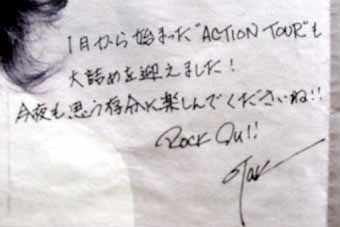 1月から始まった"ACTION TOUR"も
大詰めを迎えました!
今夜も思う存分に楽しんでくださいね!!
ROCK ON!!
Tak